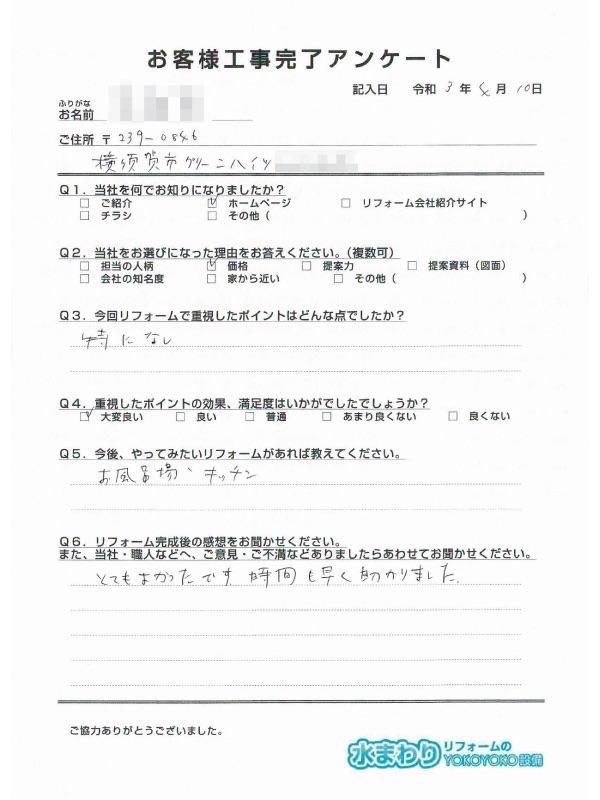 お客様工事完了アンケート
記入日 令和 3 年 4 月 10日
ふりがな
お名前
ご住所 〒 239-0846
横須賀市グリーンハイツ
Q1. 当社を何でお知りになりましたか?
□ ご紹介 ☑ ホームページ □ リフォーム会社紹介サイト
□ チラシ □ その他 ( )
Q2. 当社をお選びになった理由をお答えください。(複数可)
□ 担当の人柄 ☑ 価格 □ 提案力 □ 提案資料(図面)
□ 会社の知名度 □ 家から近い □ その他 ( )
Q3. 今回リフォームで重視したポイントはどんな点でしたか?
特になし
Q4. 重視したポイントの効果、満足度はいかがでしたでしょうか?
☑ 大変良い □ 良い □ 普通 □ あまり良くない □ 良くない
Q5. 今後、やってみたいリフォームがあれば教えてください。
お風呂場、キッチン
Q6. リフォーム完成後の感想をお聞かせください。
また、当社・職人などへ、ご意見・ご不満などありましたらあわせてお聞かせください。
とてもよかったです 時間も早く助かりました。
ご協力ありがとうございました。
水まわりリフォームのYOKOYOKO設備